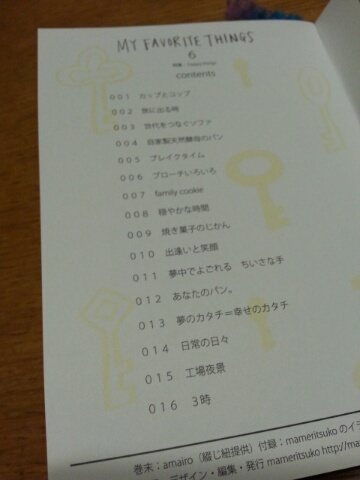 MY FAVORITE THINGS
6
contents
001 カップとコップ
002 旅に出る時
003 世代をつなぐソファ
004 自家製天然酵母のパン
005 ブレイクタイム
006 ブローチいろいろ
007 family cookie
008 穏やかな時間
009 焼き菓子のじかん
010 出逢いと笑顔
011 夢中でよごれる ちいさな手
012 あなたのパン。
013 夢のカタチ=幸せのカタチ
014 日常の日々
015 工場夜景
016 3時
巻末:amairo(綴じ紐提供)付録:mameritsuko のイラ
デザイン・編集・発行 mameritsuko http://ma